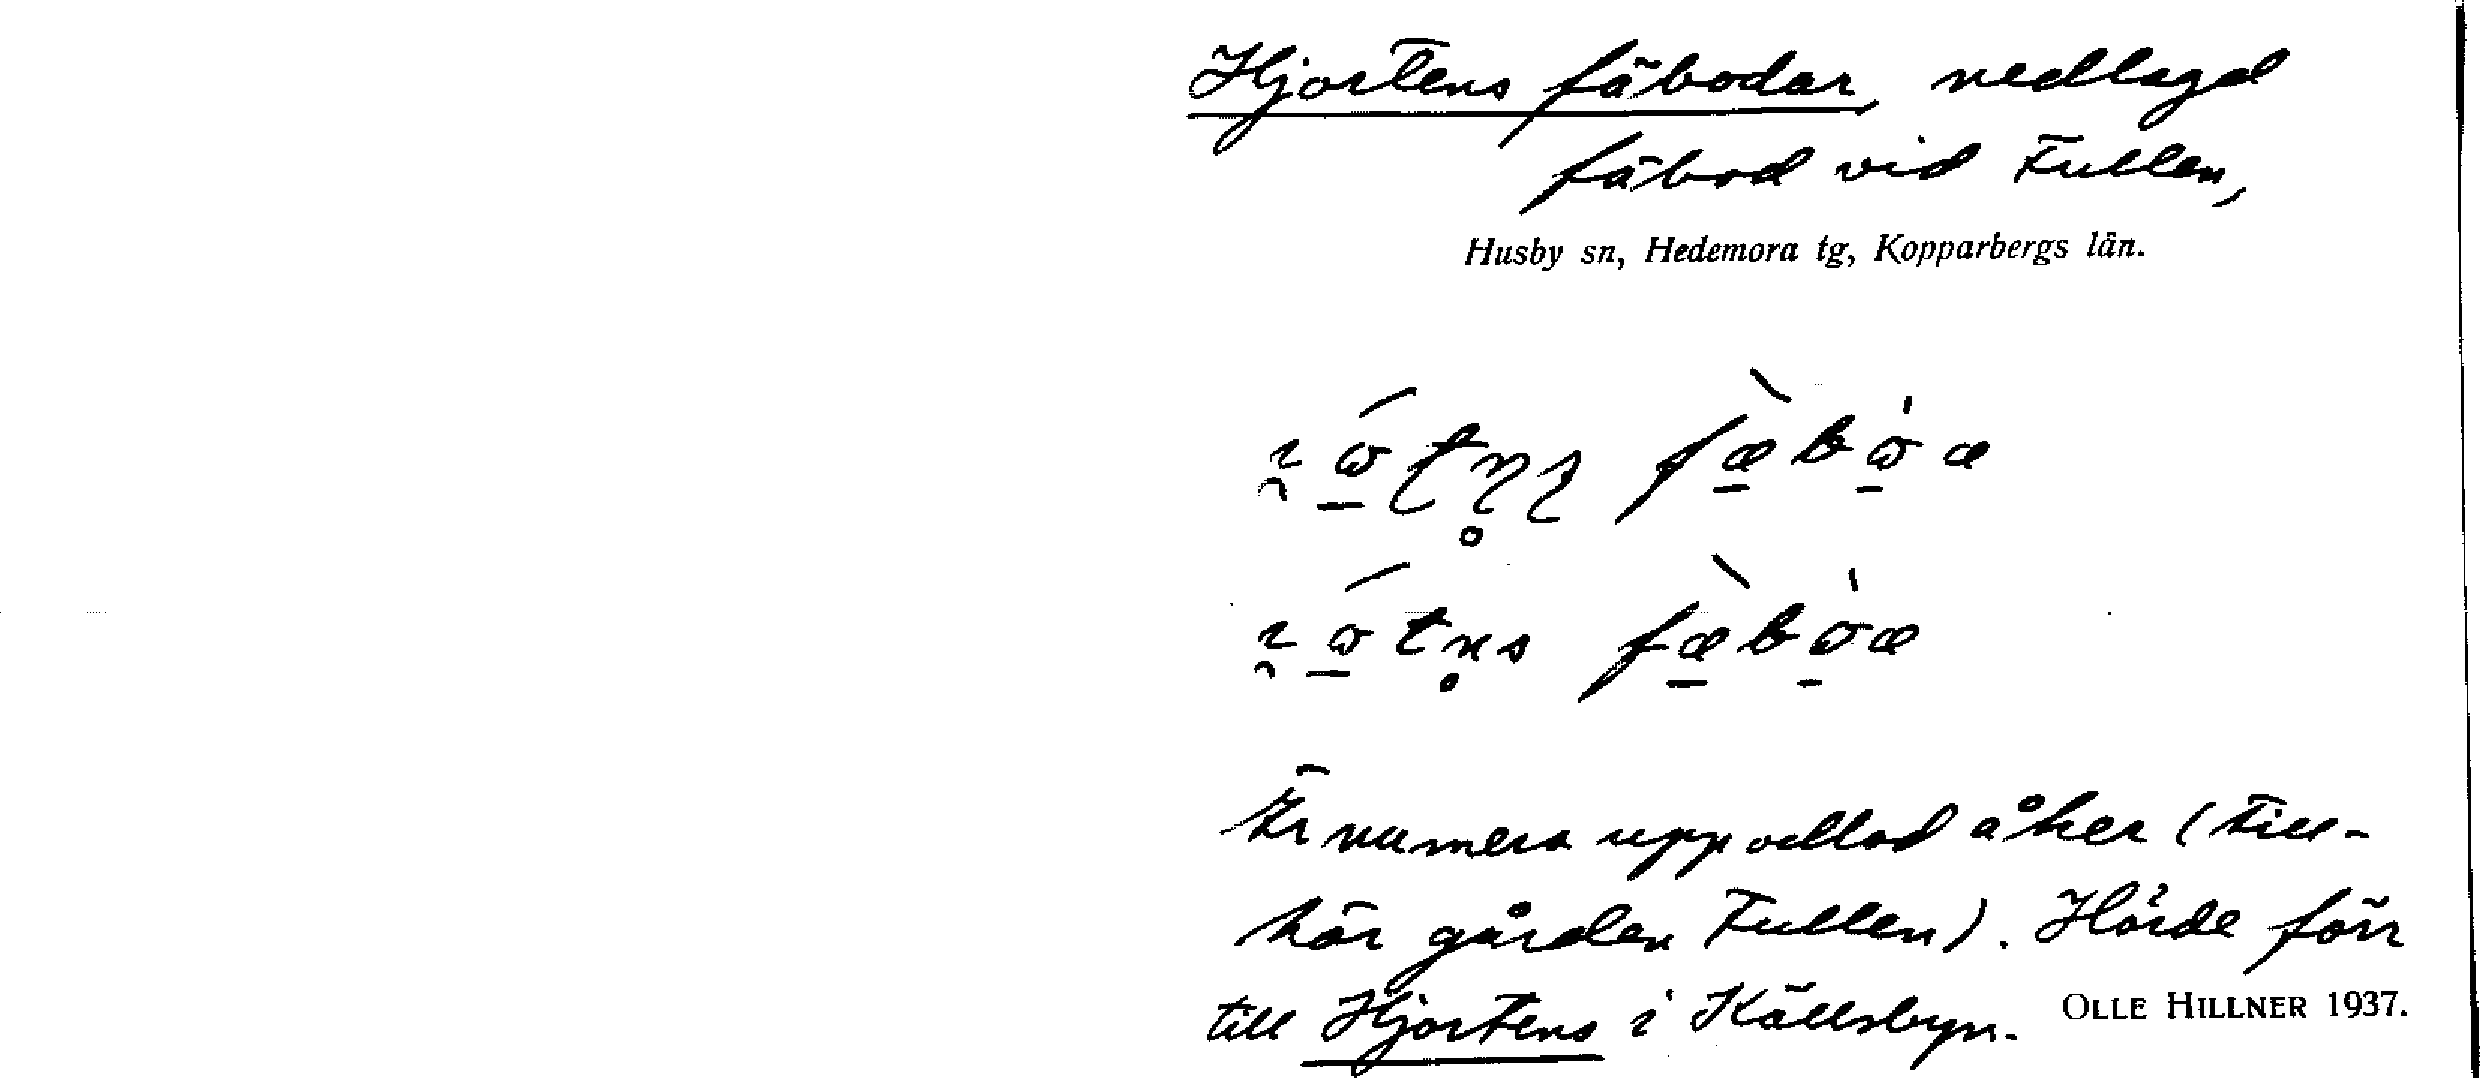 Hjortens fäbodar, nedlagd
fäbod vid Fullen,
Husby sn, Hedemora tg, Kopparbergs län.
Är numera uppodlad åker (till-
hör gården Fullen). Hörde förr
till Hjortens i Källsbyn.
OLLE HILLNER 1937.